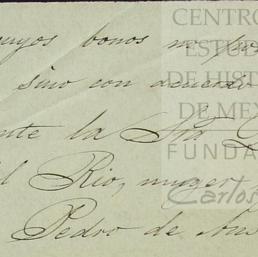 cuyos bonos no
sino con acuerdo
ente la Sra
el Rio, muger
Pedro de
CENTRO
ESTUD
DE HIST
DE MÉX
FUNDA
Carlos